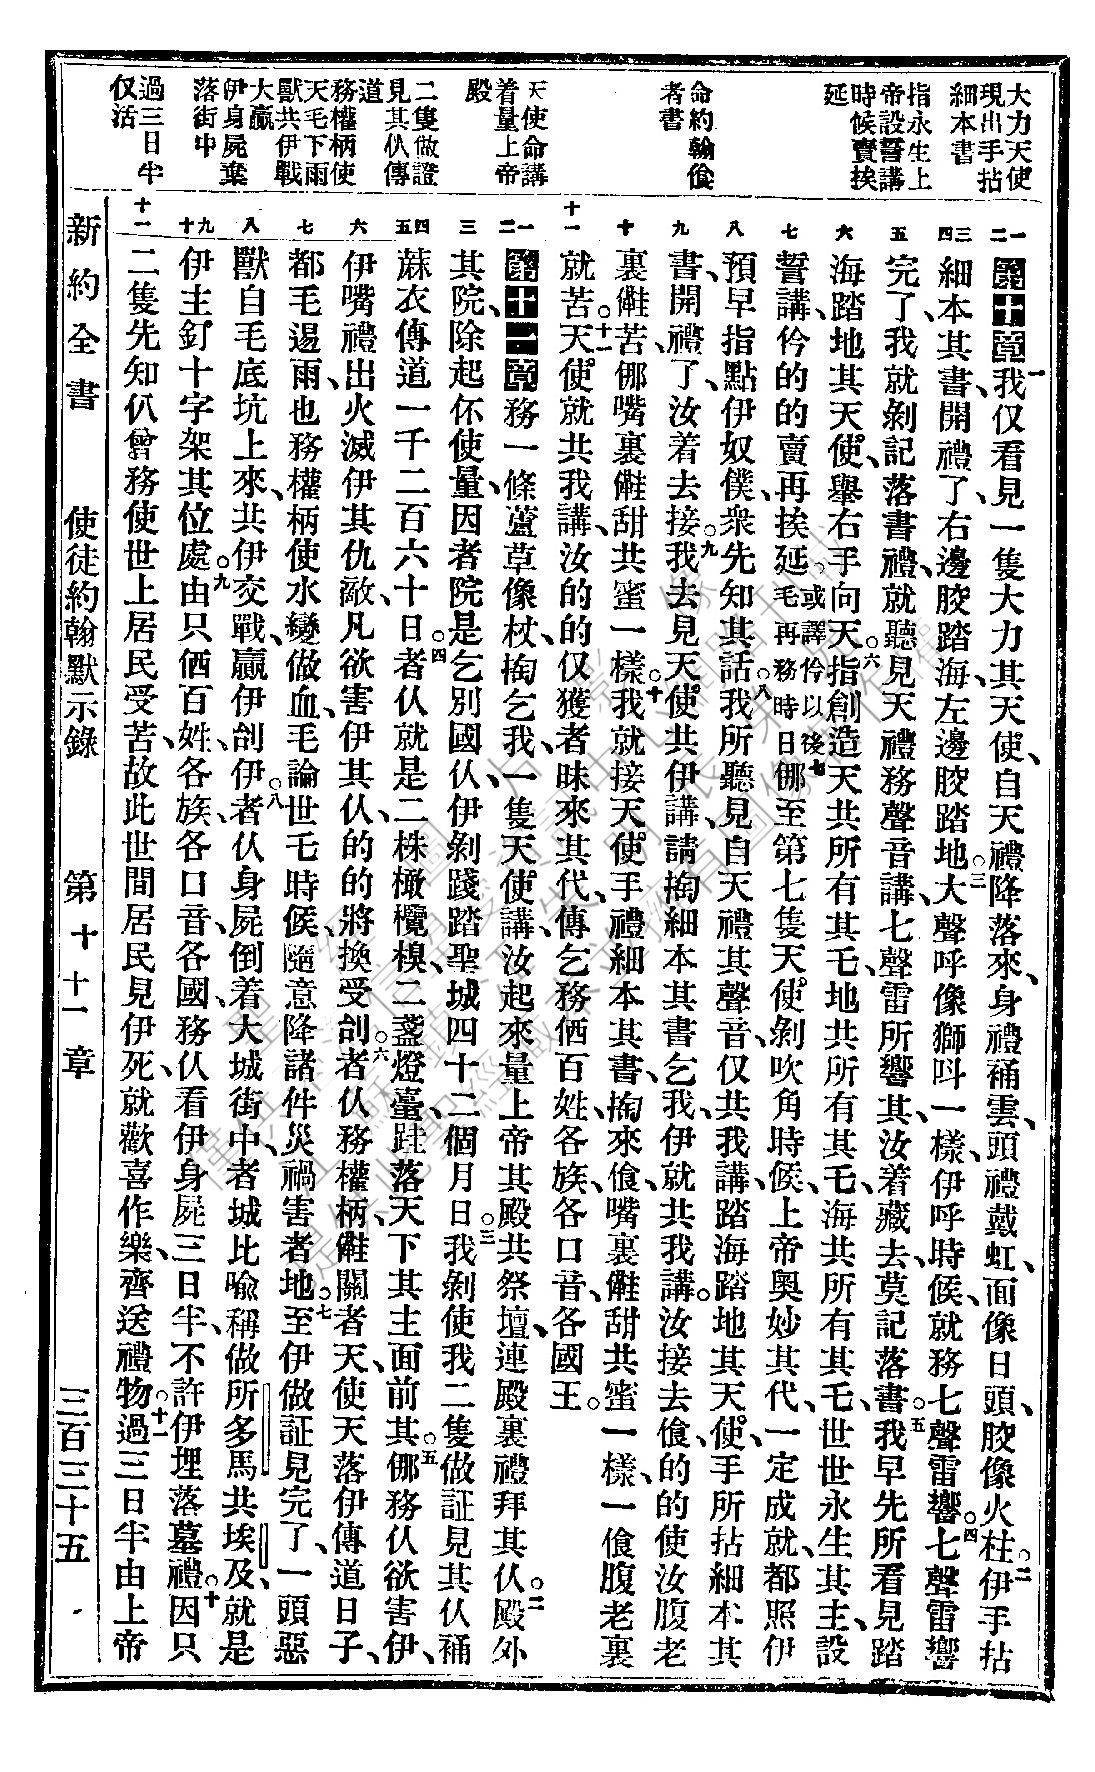 大力天使
現出手拈
細本書
指永生上
帝設誓講
時候賣挨
延
命約翰食
者書
天使命講
着量上帝
殿
二隻做證
見其仈傳
道
務權柄使
天毛下雨
獸共伊戰
大贏
伊身屍棄
落街中
過三日半
仅活
第十章我仅看見一隻大力其天使、自天禮降落來、身禮補雲、頭禮戴虹、面像日頭、骹像火柱。二伊手拈
細本其書、開禮了、右邊骹踏海、左邊骹踏地、三大聲呼像獅呌一樣、伊呼時候、就務七聲雷響。四七聲雷響
完了、我就剝記落書禮、就聽見天禮務聲音講、七聲雷所響其、汝着藏去、莫記落書。五我早先所看見踏
海踏地其天使、舉右手向天、六指創造天共所有其乇、地共所有其乇、海共所有其乇、世世永生其主、設
誓講、仱的的賣再挨延。或譯仱以後毛再務時日七㑚至第七隻天使剝吹角時候、上帝奧妙其代、一定成就、都照伊
預早指點伊奴僕、衆先知其話。八我所聽見自天禮其聲音、仅共我講、踏海踏地其天使、手所拈細本其
書、開禮了、汝着去接。九我去見天使、共伊講、請掏細本其書乞我、伊就共我講、汝接去食、的的使汝腹老
裏𣍐苦、㑚嘴裏𣍐甜共蜜一樣。十我就接天使手禮細本其書、掏來食、嘴裏𣍐甜共蜜一樣、一食腹老裏
就苦。十一天使就共我講、汝的的仅獲者昧來其代、傳乞務㑚百姓、各族、各口音、各國王。
第十一章務一條蘆草像杖、掏乞我、一隻天使講、汝起來量上帝其殿、共祭壇、連殿裏禮拜其仈。二殿外
其院、除起伓使量、因者院是乞別國仈、伊剝踐踏聖城四十二個月日。三我剝使我二隻做証見其仈、補
蔴衣傳道一千二百六十日。四者仈就是二株橄欖樹、二盞燈臺、跬落天下其主面前其。五㑚務仈欲害伊、
伊嘴禮出火滅伊其仇敵、凡欲害伊其仈、的的將換受刣。六者仈務權柄、𣍐關者天、使天落伊傳道日子、
都毛逿雨、也務權柄使水變做血、毛論世乇時候、隨意降諸件災禍害者地。七至伊做証見完了、一頭惡
獸自毛底坑上來、共伊交戰、贏伊刣伊。八者仈身屍倒着大城街中、者城比喻稱做所多馬共埃及、就是
伊主釘十字架其位處。九由只㑚百姓、各族、各口音、各國、務仈看伊身屍三日半、不許伊埋落墓禮。十因只
二隻先知仈曾務使世上居民受苦、故此世間居民見伊死、就歡喜作樂、齊送禮物。十一過三日半、由上帝
新約全書　使徒約翰默示錄　第十　十一章　三百三十五